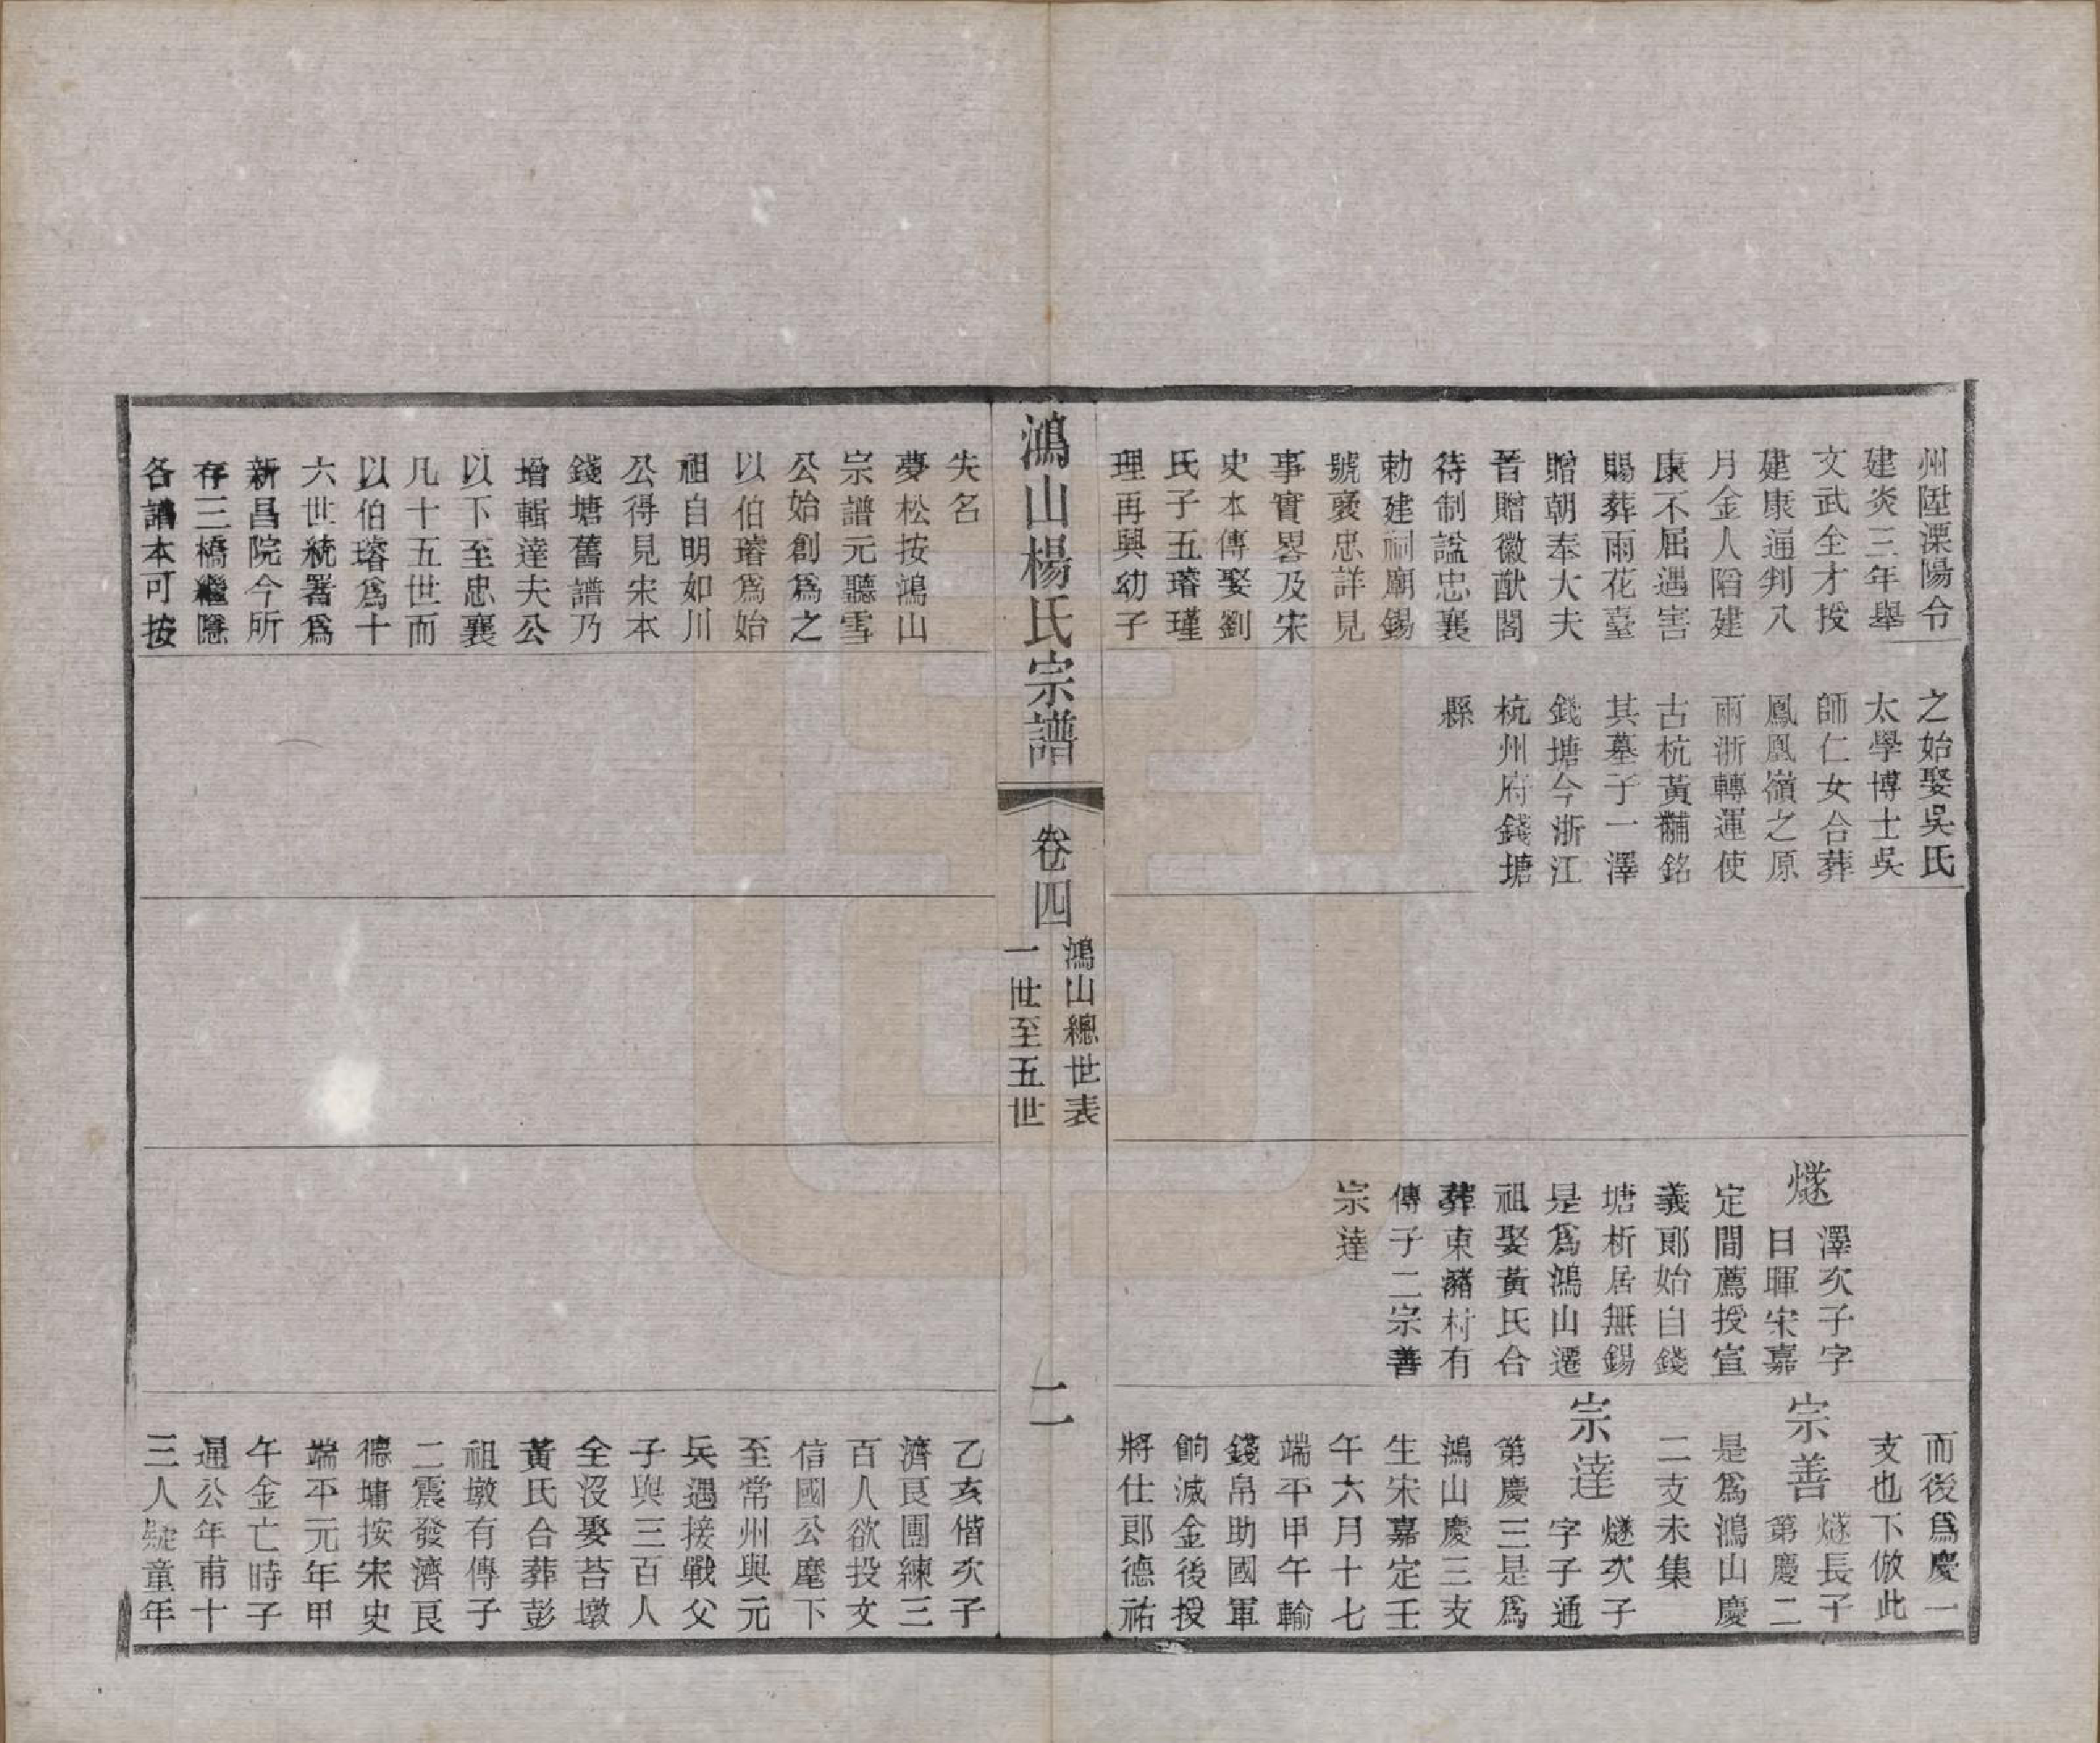 州陞溧陽令
建炎三年舉
文武全才授
建康通判八
月金人陷建
康不屈遇害
賜葬雨花臺
贈朝奉大夫
晉贈徽猷閣
待制諡忠襄
勅建祠廟錫
號襃忠詳見
事實畧及宋
史本傳娶劉
氏子五璿瑾
理再興幼子
之始娶吳氏
太學博士吳
師仁女合葬
鳳凰嶺之原
兩浙轉運使
古杭黃黼銘
其墓子一澤
錢塘今浙江
杭州府錢塘
縣
燧
澤次子字
日暉宋嘉
定間薦授宣
義郞始自錢
塘析居無錫
是爲鴻山遷
祖娶黃氏合
葬東豬村有
傳子二宗善
宗達
而後爲慶一
支也下倣此
宗善
燧長子
第慶二
是爲鴻山慶
二支未集
宗達
燧次子
字子通
第慶三是爲
鴻山慶三支
生宋嘉定壬
午六月十七
端平甲午輸
錢帛助國軍
餉滅金後授
將仕郎德祐
鴻山楊氏宗譜
卷四
鴻山總世表
一世至五世
二
失名
夢松按鴻山
宗譜元聽雪
公始創爲之
以伯璿爲始
祖自明如川
公得見宋本
錢塘舊譜乃
增輯達夫公
以下至忠襄
凡十五世而
以伯璿爲十
六世統署爲
新昌院今所
存三橋繼隱
各譜本可按
乙亥偕次子
濟良團練三
百人欲投文
信國公麾下
至常州與元
兵遇接戰父
子與三百人
全沒娶苔墩
黃氏合葬彭
祖墩有傳子
二震發濟良
德墉按宋史
端平元年甲
午金亡時子
通公年甫十
三人號童年